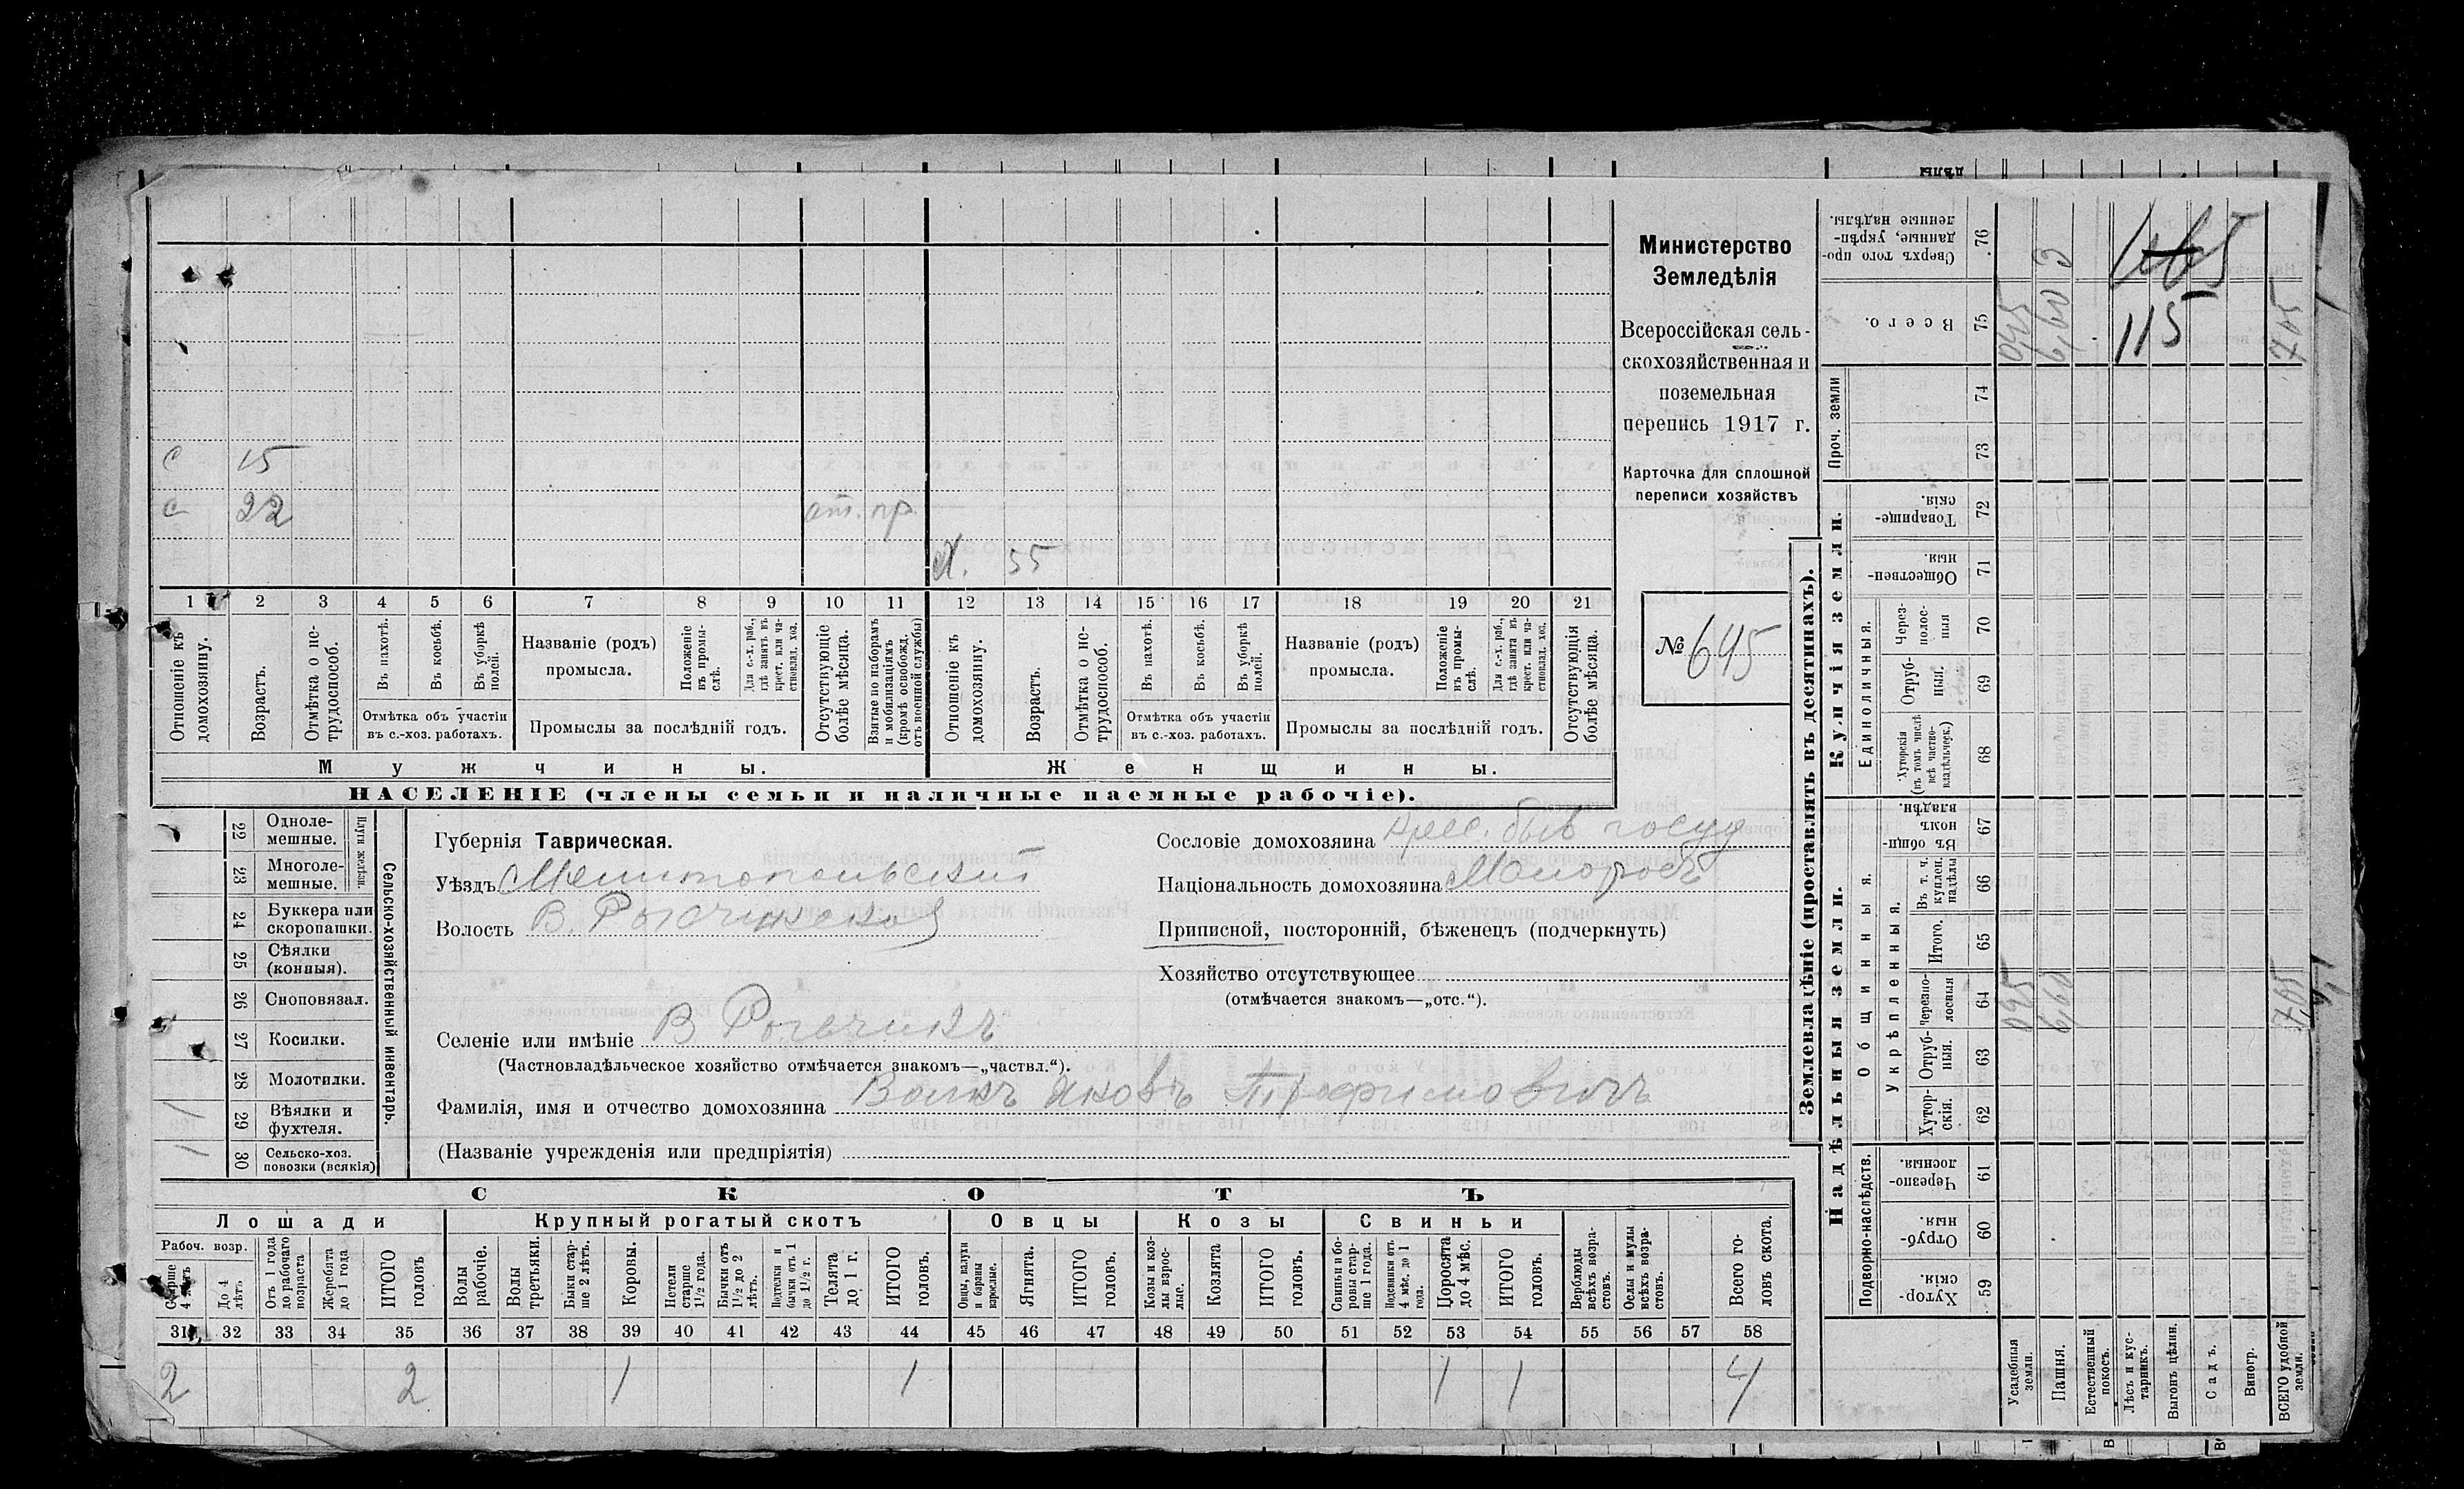 Министерство
Земледѣлія
Всероссійская сель-
скохозяйственная и
поземельная
перепись 1917 г.
Карточка для сплошной
переписи хозяйствъ
№ 645
с 15
с 22 от. пр.
Х. 55
1 2 3 4 5 6 7 8 9 10 11 12 13 14 15 16 17 18 19 20 21
Отношеніе къ домохозяину.
Возрастъ.
Отмѣтка о не-трудоспособ.
Въ пахотѣ.
Въ косьбѣ.
Въ уборкѣ полей.
Отмѣтка объ участіи
въ с.-хоз. работахъ.
Названіе (родъ)
промысла.
Положеніе въ промы-слѣ.
Для с.-х. раб., гдѣ занятъ въ крест. или ча-стновлад. хоз.
Промыслы за послѣдній годъ.
Отсутствующіе болѣе мѣсяца.
Взятые по наборамъ и мобилизаціямъ (кромѣ освобожд. отъ военной службы)
Отношеніе къ домохозяину.
Возрастъ.
Отмѣтка о не-трудоспособ.
Въ пахотѣ.
Въ косьбѣ.
Въ уборкѣ полей.
Отмѣтка объ участіи
въ с.-хоз. работахъ.
Названіе (родъ)
промысла.
Положеніе въ промы-слѣ.
Для с.-х. раб., гдѣ занята въ крест. или ча-стновлад. хоз.
Промыслы за послѣдній годъ.
Отсутствующія болѣе мѣсяца.
Мужчины.
Женщины.
НАСЕЛЕНІЕ (члены семьи и наличные наемные рабочіе).
Сельско-хозяйственный инвентарь.
Плуги желѣзн.
22 Одноле-мешные.
23 Многоле-мешные.
24 Буккера или скоропашки.
25 Сѣялки (конныя).
26 Сноповязал.
27 Косилки.
28 Молотилки.
29 Вѣялки и фухтеля. 1
30 Сельско-хоз. повозки (всякія) 1
Губернія Таврическая.
Уѣздъ Мелитопольскій
Волость В. Рогачикская
Селеніе или имѣніе В Рогачикъ
(Частновладѣльческое хозяйство отмѣчается знакомъ—„частвл.“).
Фамилія, имя и отчество домохозяина Волкъ Яковъ Трофимовичъ
(Названіе учрежденія или предпріятія)
Сословіе домохозяина Крес. быв госуд
Національность домохозяина Малоросъ
Приписной, посторонній, бѣженецъ (подчеркнуть)
Хозяйство отсутствующее
(отмѣчается знакомъ—„отс.“).
СКОТЪ
Лошади
Крупный рогатый скотъ
Овцы
Козы
Свиньи
Рабоч. возр.
Старше 4 лѣтъ
До 4 лѣтъ.
Отъ 1 года до рабочаго возраста
Жеребята до 1 года
ИТОГО головъ
Волы рабочіе.
Волы третьяки.
Быки стар-ше 2 лѣтъ.
Коровы.
Нетели старше 1½ года.
Бычки отъ 1½ до 2 лѣтъ.
Подтелки и бычки отъ 1 до 1½ г.
Телята до 1 г.
ИТОГО головъ.
Овцы, валухи и бараны взрослые.
Ягнята.
ИТОГО головъ.
Козы и коз-лы взрос-лые.
Козлята
ИТОГО головъ.
Свиньи и бо-ровы стар-ше 1 года.
Подсвинки отъ 4 мѣс. до 1 года.
Поросята до 4 мѣс.
ИТОГО головъ.
Верблюды всѣхъ возра-стовъ.
Ослы и мулы всѣхъ возра-стовъ.
Всего го-ловъ скота.
31 32 33 34 35 36 37 38 39 40 41 42 43 44 45 46 47 48 49 50 51 52 53 54 55 56 57 58
2 2 1 1 1 1 4
Землевладѣніе (проставлять въ десятинахъ).
Надѣльныя земли.
Купчія земли.
Проч. земли
Подворно-наслѣдств.
Общинныя
Укрѣпленныя.
Единоличныя.
Сверхъ того про-данные, укрѣп-ленные надѣлы. 76
Всего. 75
74
73
Товарище-скія. 72
Обществен-ныя. 71
Через-полос-ныя 70
Отруб-ныя. 69
Хуторскія (въ томъ числѣ всѣ частно-владѣльческ.) 68
Въ общин-номъ владѣн. 67
Въ т. ч. куплен. надѣлы 66
Итого. 65
Черезпо-лосныя 64
Отруб-ныя. 63
Хутор-скія. 62
Черезпо-лосныя. 61
Отруб-ныя. 60
Хутор-скія. 59
Усадебныя земли.
Пашня.
Естественный покосъ.
Лѣсъ и кус-тарникъ.
Выгонъ цѣлин.
Садъ.
Виногр.
ВСЕГО удобной земли.
0,45 6,60 7,05
115
045 6,60 7,05